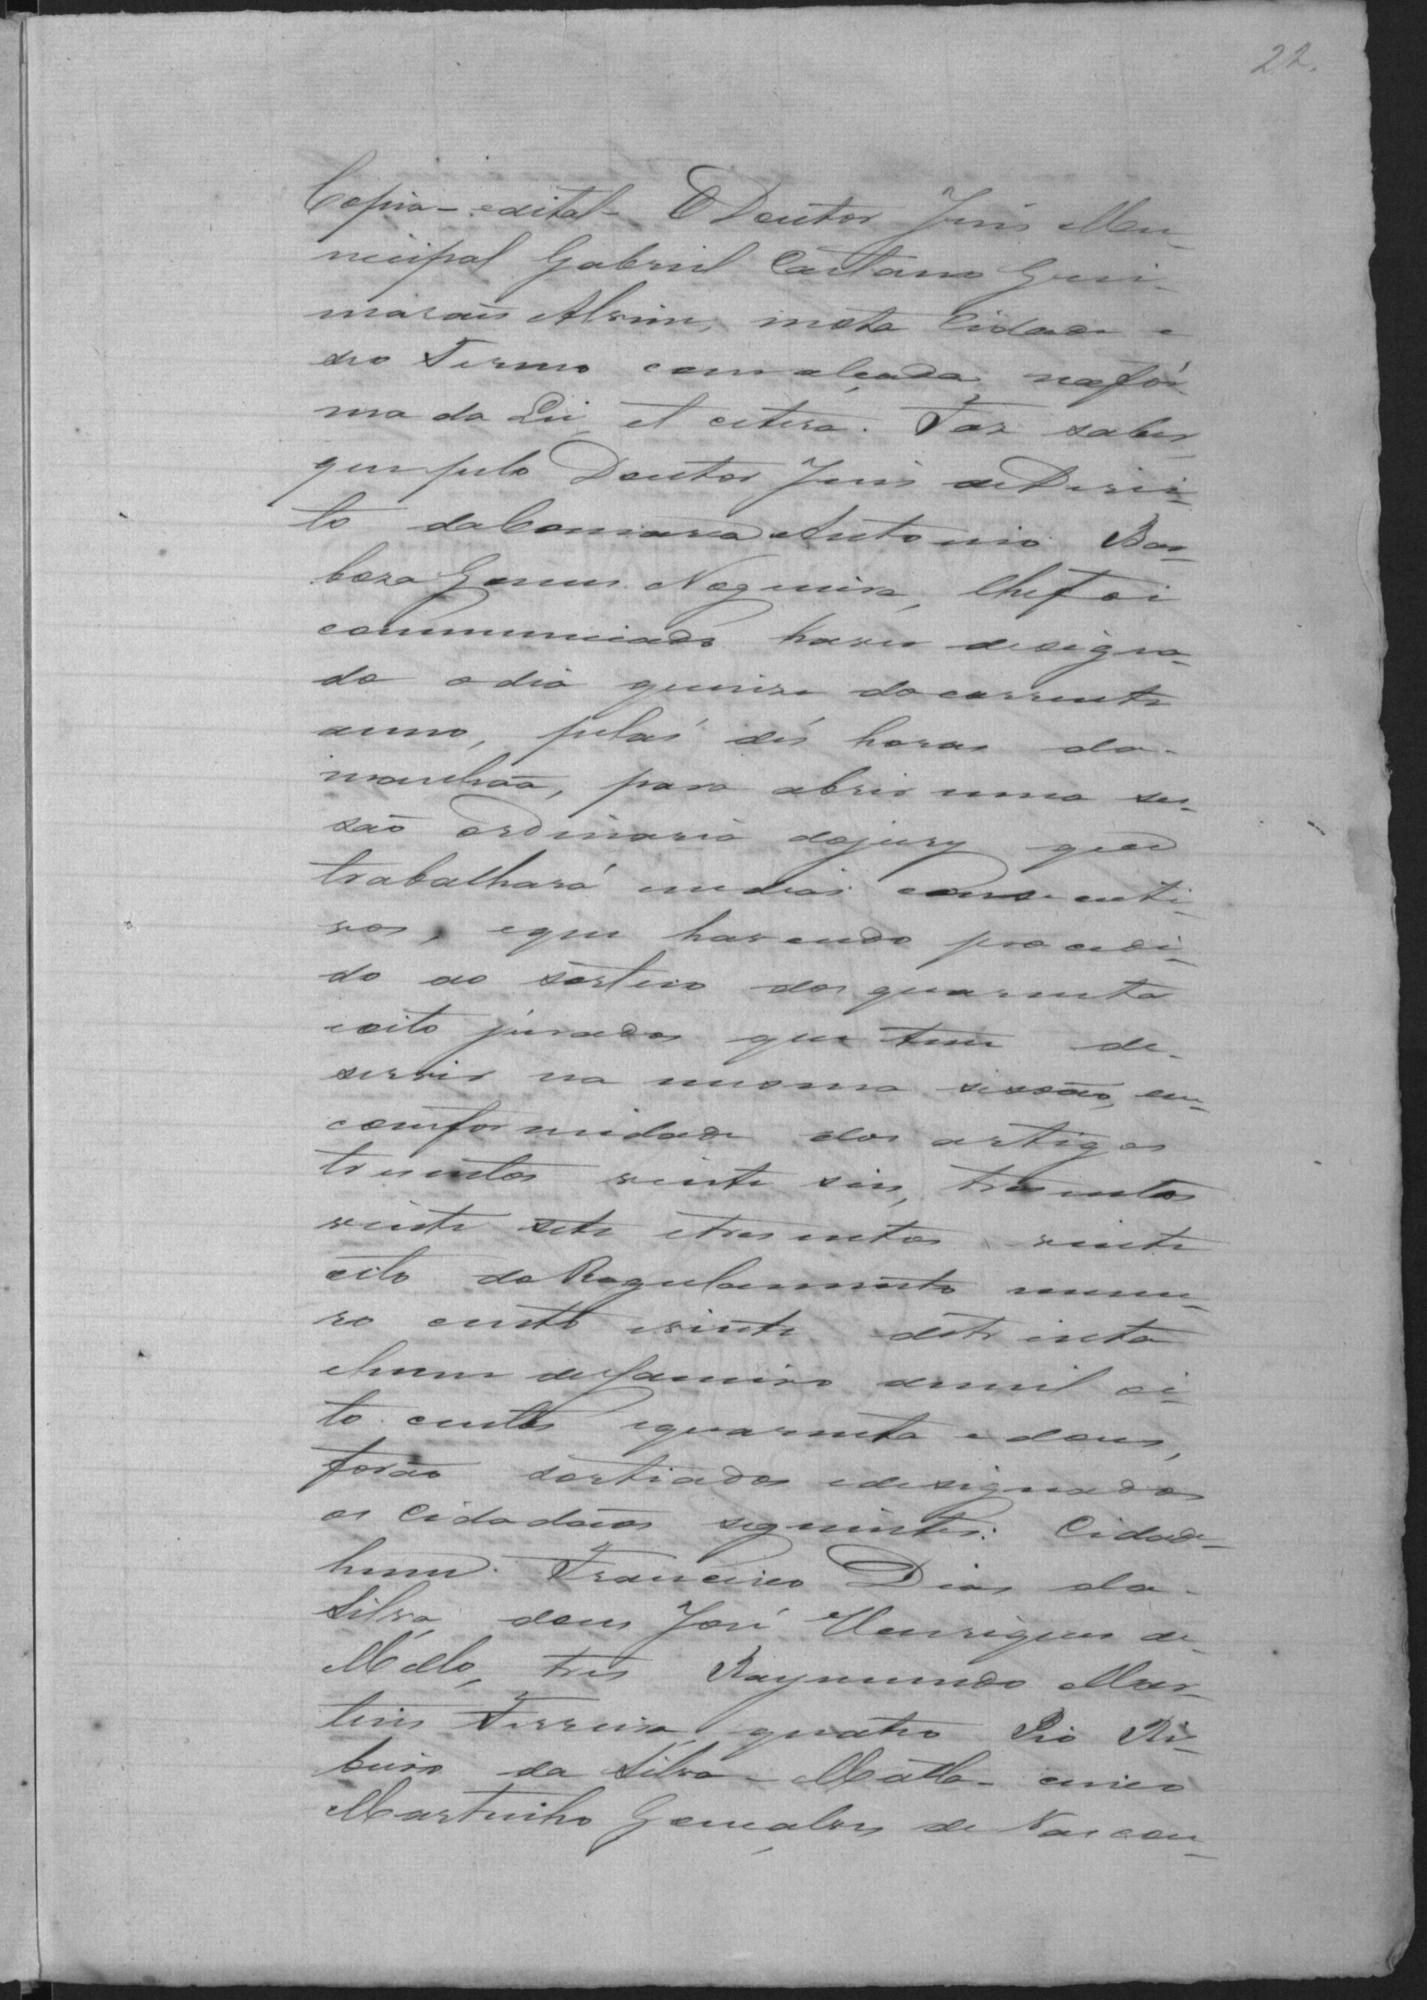 22.
Copia - edital - O Doutor Juis Mu-
nicipal Gabriel Caetano Gui-
marais Alvim, nesta Cidade e
seo Termo com alçada na fór-
ma da Lei, et cetera. Faz saber,
que pelo Doutor Juis de Direi-
to da Comarca Antonio Bar-
boza Gomes Nogueira, lhe foi
communicado haver designa-
do o dia quinze do corrente
anno, pelas dés horas da
manhaã, para abrir uma ses-
saõ ordinaria do jury que
trabalhará em dias consecuti-
vos, e que havendo procedi-
do ao sorteio dos quarenta
eoito jurados que tem de
servir na mesma sessaõ, em
comformidade dos artigos
tresentos vinte seis, tresentos
vinte sete e tresentos vinte
oito do Regulamento nume-
ro cento e vinte de trinta
ehum de Janeiro demil oi-
to centos equarenta e dous,
foraõ sortiados e designados
os Cidadaõs seguintes: Cidade-
hum. Francisco Dias da
Silva, dous José Henriques de
Mello, tres Raymundo Mar-
tins Ferreira, quatro Pio Ri-
beiro da Silva - Matta - cinco
Martinho Gonçalves de Vascon-